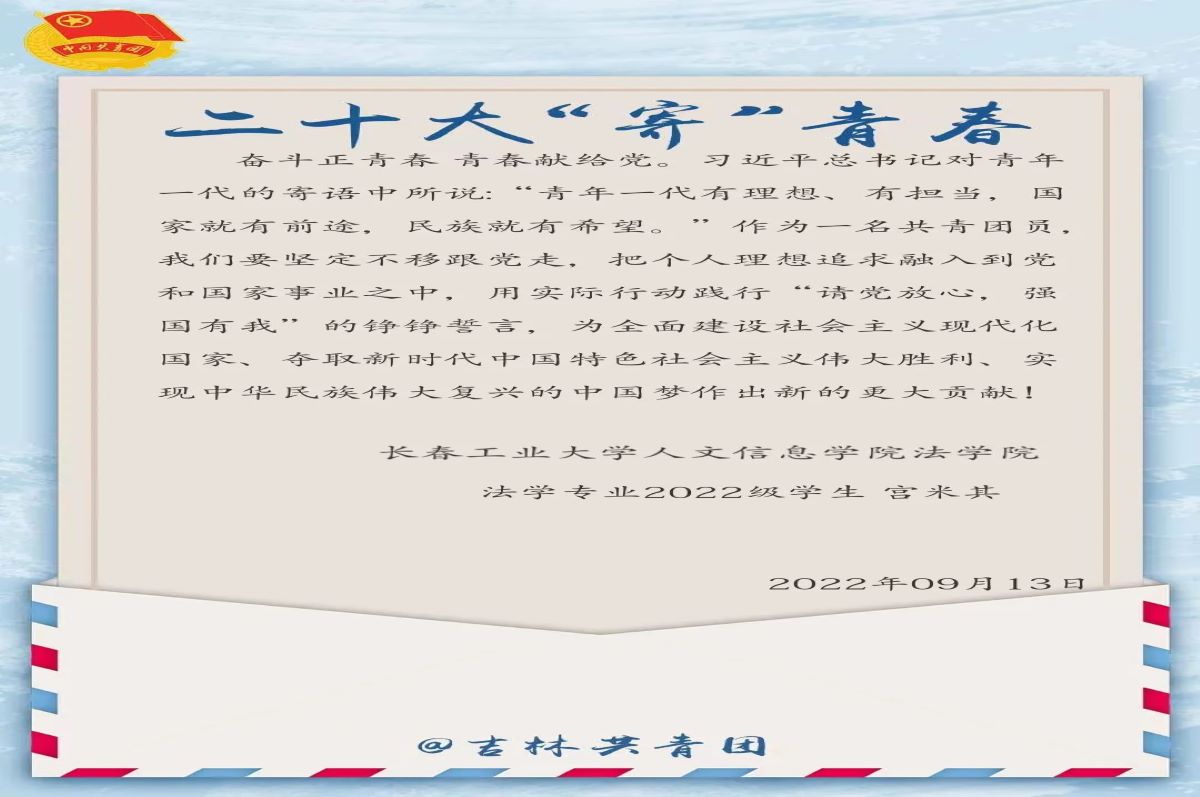 中国共青团
二十大“寄”青春
奋斗正青春 青春献给党。习近平总书记对青年
一代的寄语中所说:“青年一代有理想、有担当,国
家就有前途,民族就有希望。”作为一名共青团员,
我们要坚定不移跟党走,把个人理想追求融入到党
和国家事业之中,用实际行动践行“请党放心,强
国有我”的铮铮誓言,为全面建设社会主义现代化
国家、夺取新时代中国特色社会主义伟大胜利、实
现中华民族伟大复兴的中国梦作出新的更大贡献!
长春工业大学人文信息学院法学院
法学专业2022级学生 宫米其
2022年09月13日
@吉林共青团